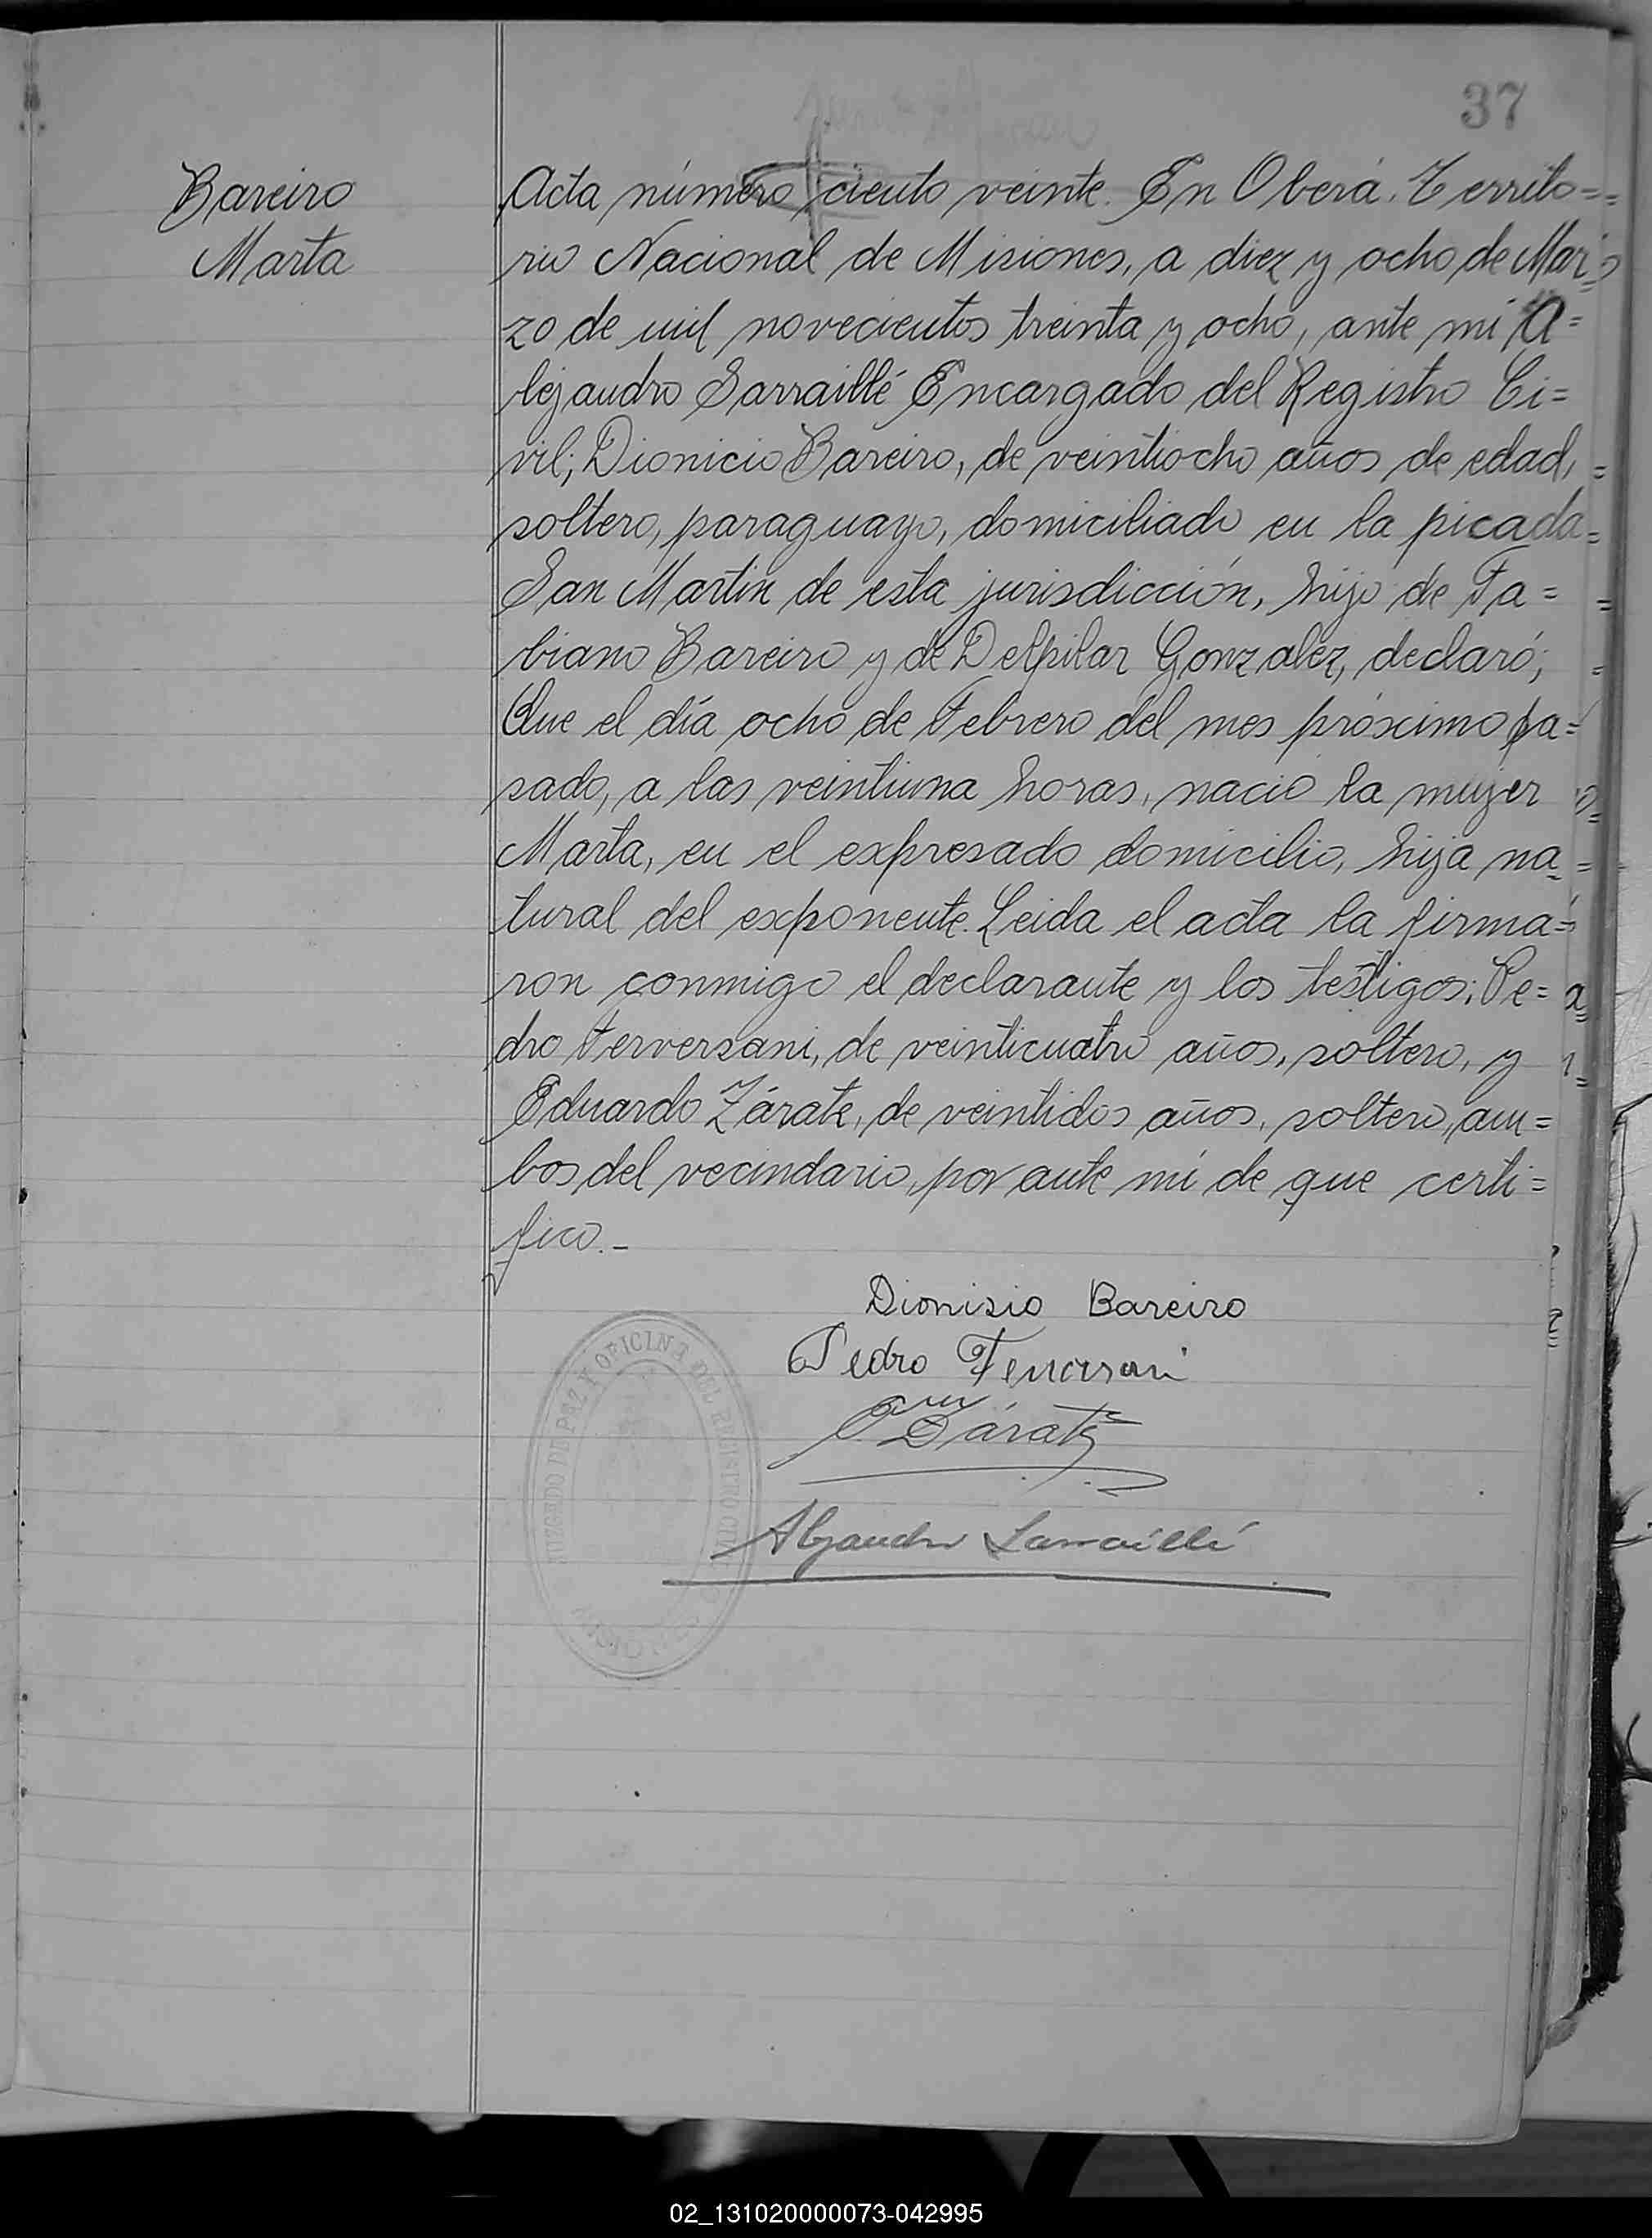 37
Bareiro
Marta
Acta número ciento veinte. En Oberá. Territo=
rio Nacional de Misiones, a diez y ocho de Mar=
zo de mil novecientos treinta y ocho, ante mi A=
lejandro Sarraillé Encargado del Registro Ci=
vil; Dionicio Bareiro, de veintiocho años de edad,
soltero, paraguayo, domiciliado en la picada
San Martin de esta jurisdicción, hijo de Fa=
biano Bareiro y de Delpilar Gonzalez, declaró;
Que el día ocho de Febrero del mes próximo pa=
sado, a las veintiuna horas, nació la mujer
Marta, en el expresado domicilio, hija na=
tural del exponente. Leida el acta la firma=
ron conmigo el declarante y los testigos; Pe=
dro Ferversani, de veinticuatro años, soltero, y
Eduardo Zárate, de veintidos años, soltero, am=
bos del vecindario, por ante mí de que certi=
fico.-
Dionisio Bareiro
Pedro
Zárate
Alejandro Sarraillé
JUZGADO DE PAZ Y OFICINA DEL REGISTRO CIVIL
02_131020000073-042995